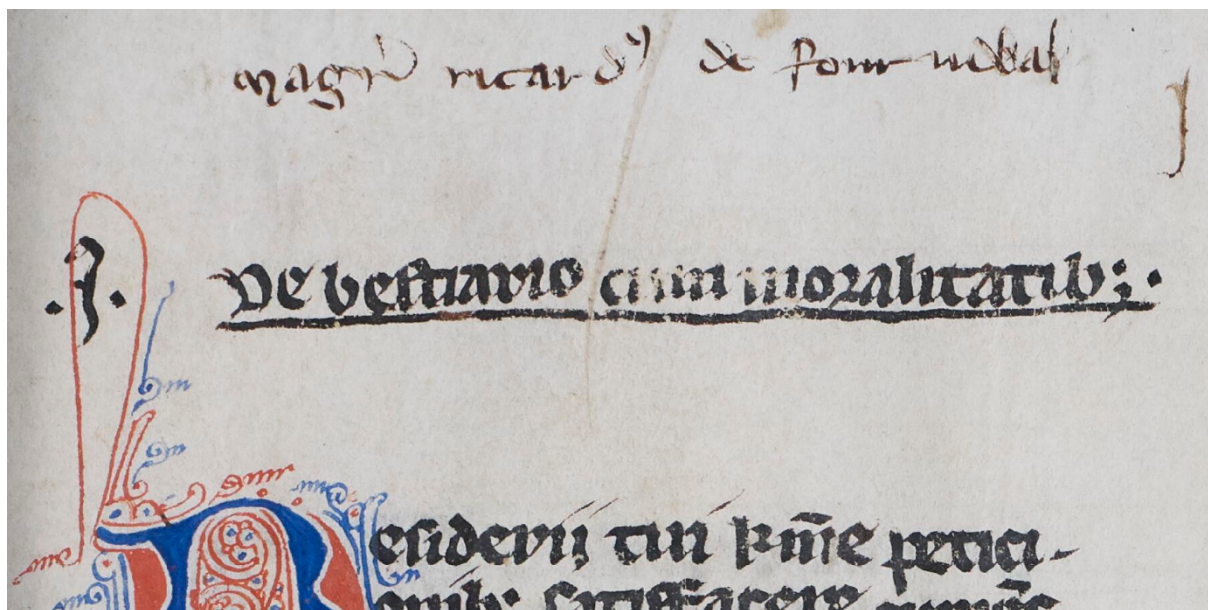 magr̄ ricard9 de fournidval
.J. De bestiario cum moralitatib;.
Desiderij tui km̄e petici-
onib; satisfacere